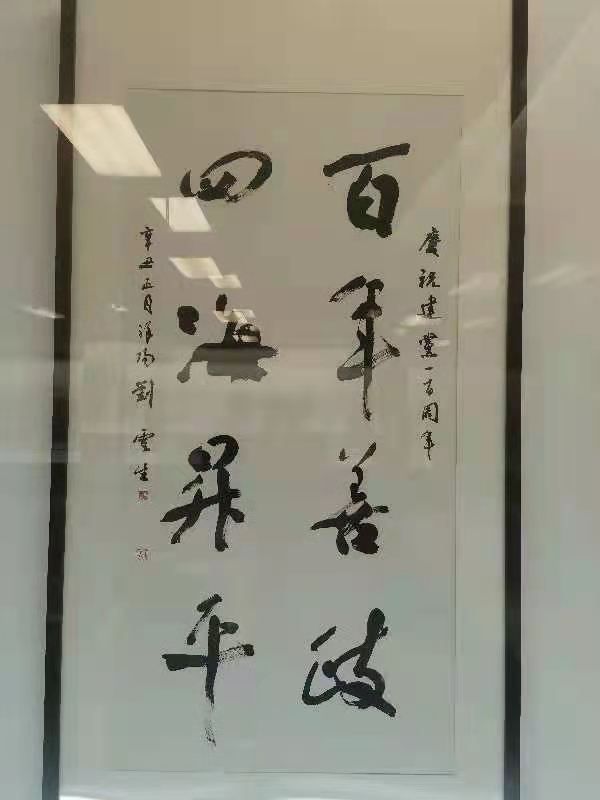 慶祝建黨一百周年
百年善政
四海昇平
辛丑正月洋陽劉雲生